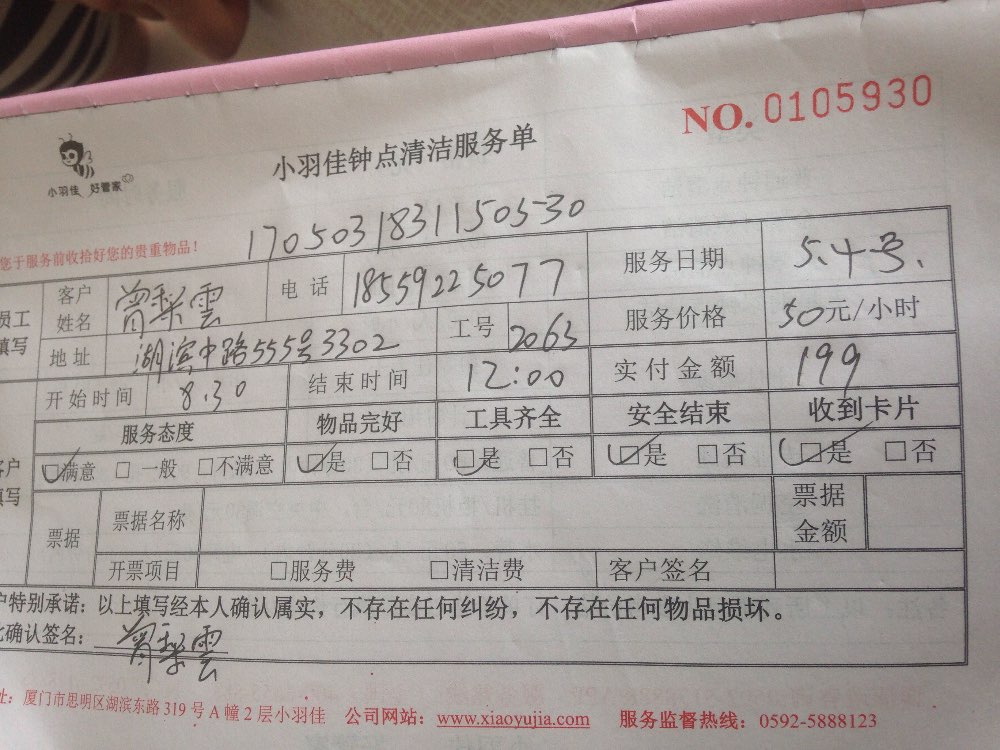 NO. 0105930
小羽佳 好管家
小羽佳钟点清洁服务单
17050318311505530
您于服务前收拾好您的贵重物品!
员工填写
客户姓名 曾梨雲 电话 18559225077 服务日期 5.4号.
地址 湖滨中路555号3302 工号 2063 服务价格 50元/小时
开始时间 8.30 结束时间 12:00 实付金额 199
服务态度 物品完好 工具齐全 安全结束 收到卡片
客户填写
□满意 □一般 □不满意 □是 □否 □是 □否 □是 □否 □是 □否
票据 票据名称 票据金额
开票项目 □服务费 □清洁费 客户签名
户特别承诺:以上填写经本人确认属实,不存在任何纠纷,不存在任何物品损坏。
此确认签名: 曾梨雲
址:厦门市思明区湖滨东路319号A幢2层小羽佳 公司网站:www.xiaoyujia.com 服务监督热线:0592-5888123